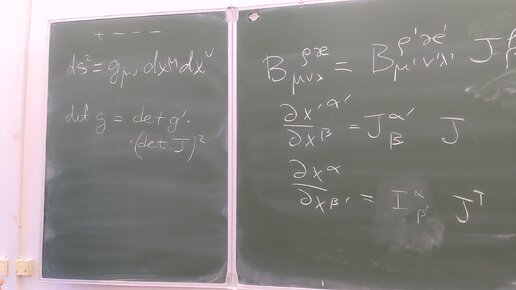 + - - - -
ds² = g_{μν} dx^μ dx^ν
det g = det g' ·
· (det J)²
B_{μνλ}^{ρæ} = B_{μ'ν'λ'}^{ρ'æ'} J
∂x'^{α'} / ∂x^β = J_β^{α'} J
∂x^α / ∂x^{β'} = I_{β'}^α J^T